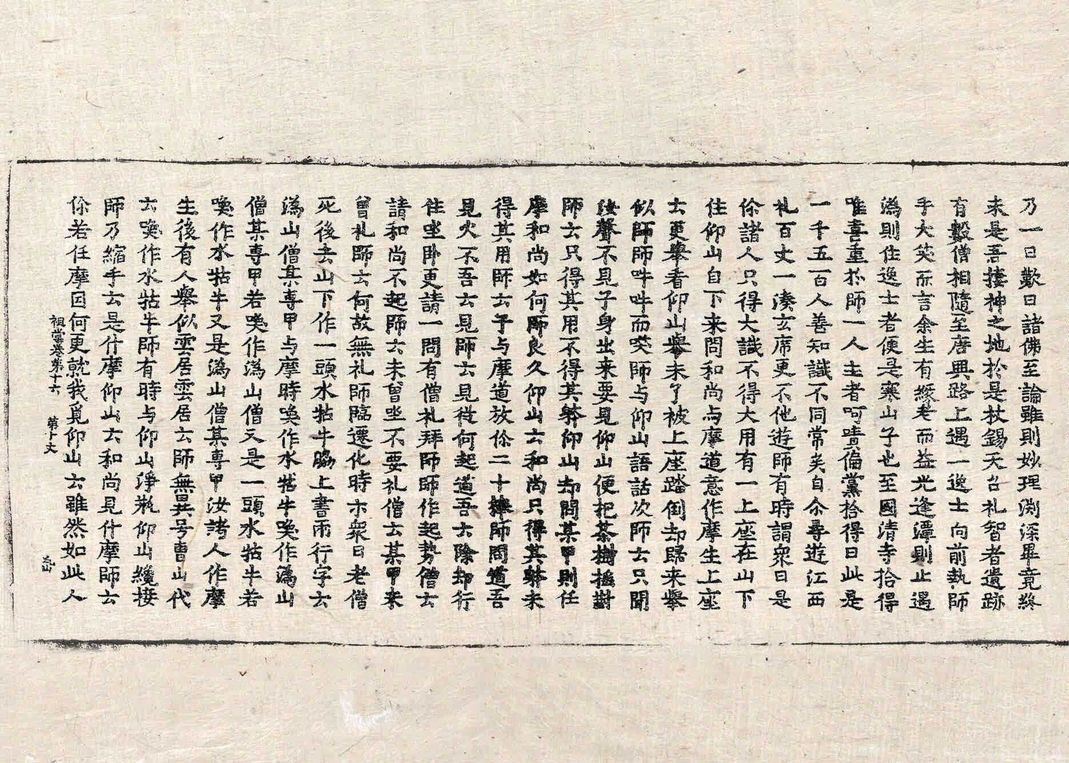 乃一日歎曰諸佛至論雖則妙理渊深畢竟終
未是吾捿神之地於是杖錫天台礼智者遺跡
有數僧相隨至唐興路上遇一逸士向前執師
手大笑而言余生有緣老而益光逢潭則止遇
溈則住逸士者便是寒山子也至國清寺拾得
唯喜重於師一人主者呵嘖偏黨拾得曰此是
一千五百人善知識不同常矣自介尋遊江西
礼百丈一湊玄席更不他遊師有時謂衆曰是
你諸人只得大識不得大用有一上座在山下
住仰山自下来問和尚与摩道意作摩生上座
云更舉看仰山舉未了被上座踏倒却歸来舉
似師師吽吽而咲師与仰山語話次師云只聞
汝聲不見子身出来要見仰山便把茶樹搖對
師云只得其用不得其躰仰山却問某甲則任
摩和尚如何師良久仰山云和尚只得其躰未
得其用師云子与摩道放你二十棒師問道吾
見火不吾云見師云見從何起道吾云除却行
住坐卧更請一問有僧礼拜師師作起勢僧云
請和尚不起師云未曾坐不要礼僧云某甲未
曾礼師云何故無礼師臨遷化時示衆曰老僧
死後去山下作一頭水牯牛脇上書兩行字云
溈山僧某專甲与摩時喚作水牯牛喚作溈山
僧某專甲若喚作溈山僧又是一頭水牯牛若
喚作水牯牛又是溈山僧某專甲汝諸人作摩
生後有人舉似雲居雲居云師無異号曹山代
云喚作水牯牛師有時与仰山淨瓶仰山纔接
師乃縮手云是什摩仰山云和尚見什摩師云
你若任摩因何更就我覓仰山云雖然如此人
祖堂卷第十六　第十丈